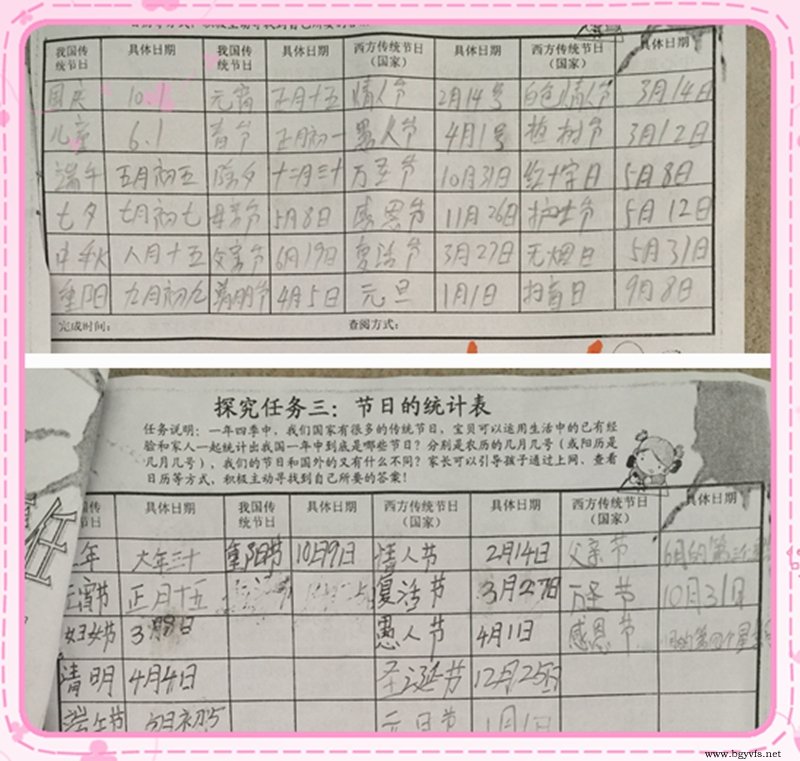 我国传统节日 具体日期 我国传统节日 具体日期 西方传统节日（国家） 具体日期 西方传统节日（国家） 具体日期
国庆 10.1 元宵 正月十五 情人节 2月14号 白色情人节 3月14日
儿童 6.1 春节 正月初一 男人节 4月1号 植树节 3月12日
端午 五月初五 除夕 十二月三十 万圣节 10月31日 红十字日 5月8日
七夕 七月初七 母亲节 5月8日 感恩节 11月26日 护士节 5月12日
中秋 八月十五 父亲节 6月19日 复活节 3月27日 无烟日 5月31日
重阳 九月初九 清明节 4月5日 元旦 1月1日 扫盲日 9月8日
完成时间： 查阅方式：
探究任务三：节日的统计表
任务说明：一年四季中，我们国家有很多的传统节日，宝贝可以运用生活中的已有经
验和家人一起统计出我国一年中到底是哪些节日？分别是农历的几月几号（或阳历是
几月几号），我们的节日和国外的又有什么不同？家长可以引导孩子通过上网、查看
日历等方式，积极主动寻找到自己所要的答案！
任
统节日 具体日期 我国传统节日 具体日期 西方传统节日（国家） 具体日期 西方传统节日（国家） 具体日期
年 大年三十 重阳节 10月9日 情人节 2月14日 父亲节 6月的第三
元宵节 正月十五 复活节 3月27日 万圣节 10月31日
妇女节 3月8日 愚人节 4月1日 感恩节 月的第四个星
清明 4月4日 圣诞节 12月25日
端午节 5月初5 元旦节 1月1日
www.bgyvfs.net